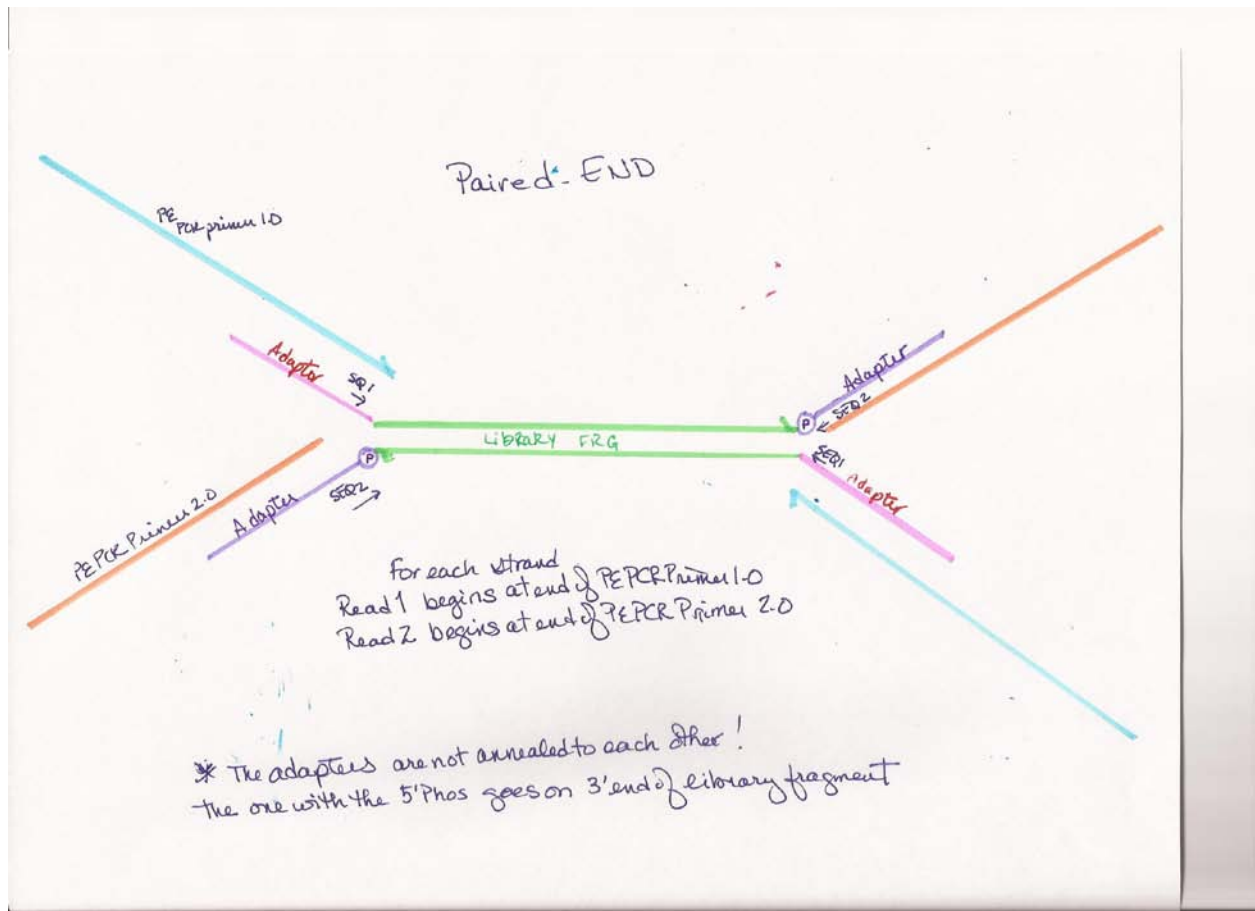 Paired-END
PE
PCR primer 1.0
Adapter
SQ1
Adapter
SEQ2
P
LIBRARY FRG
P
SEQ1
Adapter
Adapter
SEQ2
PE PCR Primer 2.0
For each strand
Read 1 begins at end of PE PCR Primer 1.0
Read 2 begins at end of PE PCR Primer 2.0
* The adapters are not annealed to each other!
the one with the 5'Phos goes on 3'end of library fragment